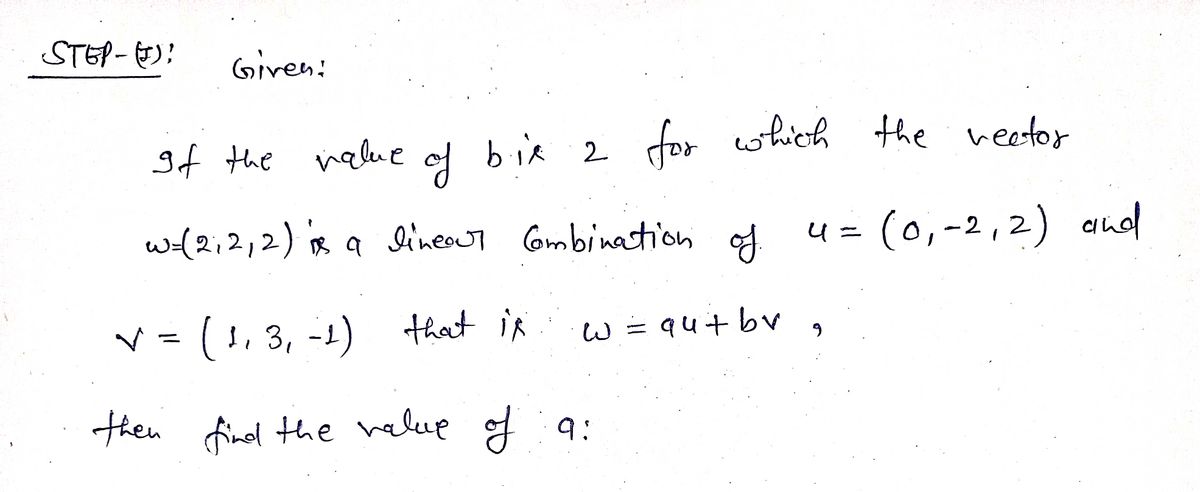 STEP-(I): Given:
If the value of b is 2 for which the vector
w=(2,2,2) is a linear Combination of u = (0,-2,2) and
v = (1, 3, -1) that is w = au + bv ,
then find the value of a: